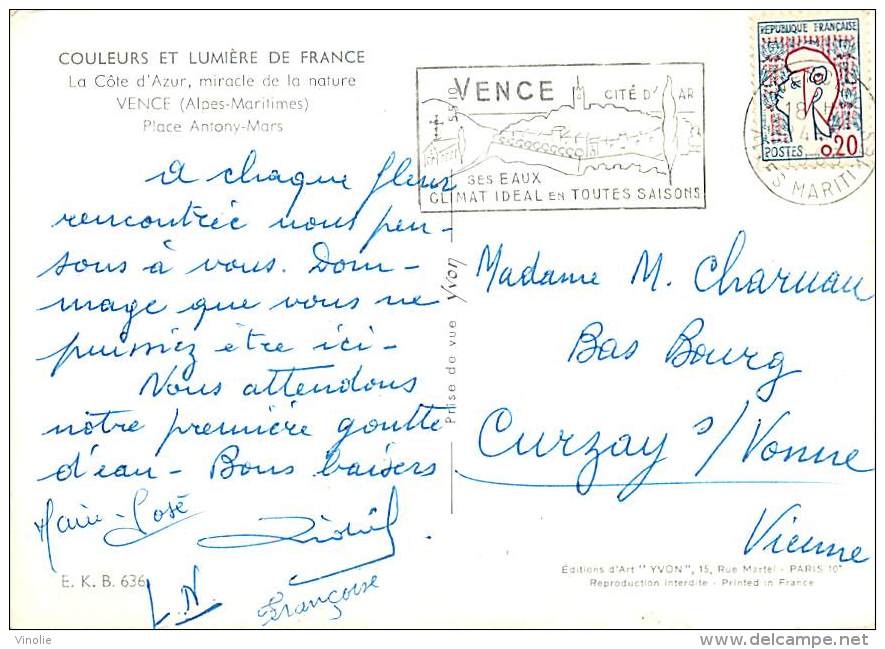 COULEURS ET LUMIÈRE DE FRANCE
La Côte d'Azur, miracle de la nature
VENCE (Alpes-Maritimes)
Place Antony-Mars
A chaque fleur
rencontrée nous pen-
sons à vous. Dom-
mage que vous ne
puissiez être ici-
Nous attendons
nôtre première goutte
d'eau- Bons baisers
Marie-José
L.N.
Françoise
E. K. B. 636
Prise de vue Yvon
VENCE CITÉ D' AR
SES EAUX
CLIMAT IDEAL EN TOUTES SAISONS
REPUBLIQUE FRANÇAISE
18 H
POSTES 0,20
ES MARITI
Madame M. Charuau
Bas Bourg
Curzay s/Vonne
Vienne
Éditions d'Art "YVON", 15, Rue Martel - PARIS 10e
Reproduction interdite - Printed in France
Vinolie
www.delcampe.net